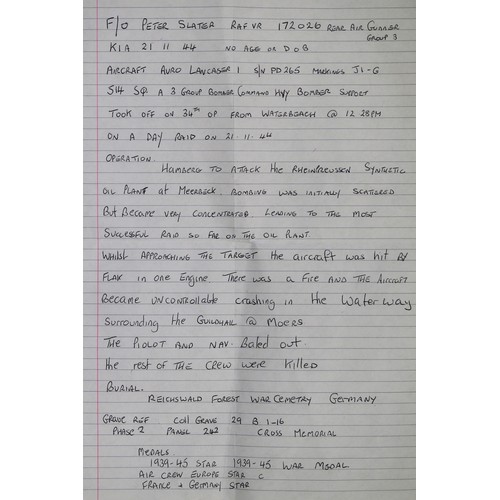 F/O PETER SLATER RAFVR 172026 REAR AIR GUNNER
GROUP 3
KIA 21 11 44 NO AGE OR DOB
AIRCRAFT AVRO LANCASER 1 S/N PD265 MARKINGS JI-G
514 SQ A 3 GROUP BOMBER COMMAND HVY BOMBER SUPPORT
TOOK OFF ON 34TH OP FROM WATERBEACH @ 12 28PM
ON A DAY RAID ON 21.11.44
OPERATION.
HAMBERG TO ATTACK the RHEINPREUSSEN SYNTHETIC
OIL PLANT at MEERBECK. BOMBING WAS INITIALLY SCATTERED
BUT BECAME VERY CONCENTRATED. LEADING TO THE MOST
SUCCESSFUL RAID SO FAR ON THE OIL PLANT.
WHILST APPROACHING THE TARGET the aircraft was hit BY
FLAK in one Engine There was a Fire AND THE AIRCRAFT
Became UNCONTROLLABLE crashing in the water way
Surrounding the GUILDHALL @ MOERS
THE PIOLOT AND NAV. Baled out
the rest of THE CREW were KILLED
BURIAL.
REICHSWALD FOREST WAR CEMETRY GERMANY
GRAVE REF COLL GRAVE 29 B 1-16
PHASE 2 PANEL 242 CROSS MEMORIAL
MEDALS.
1939-45 STAR 1939-45 WAR MEDAL
AIR CREW EUROPE STAR C
FRANCE + GERMANY STAR